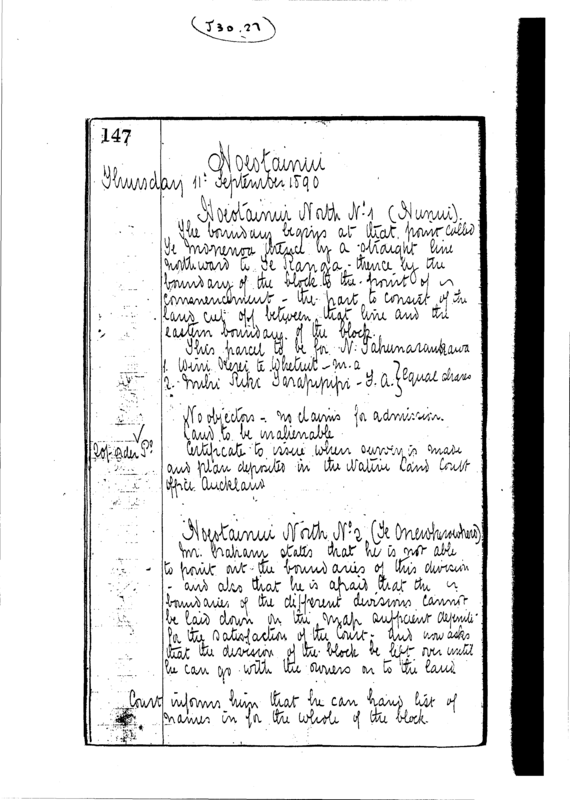 (J30.27)
147
Hoeotainui
Thursday 11th September 1890
Hoeotainui North No 1 (Hunui).
The boundary begins at that point called
Te thence by a straight line
northward to Te Ranga - thence by the
boundary of the block to the point of
commencement - the part to consist of the
land cut off between that line and the
eastern boundary of the block.
This parcel to be for N.
1. Wini te - m.a
2. - F.A. } Equal shares
No objectors - no claims for admission.
Land to be inalienable
Certificate to issue when survey is made
and plan deposited in the Native Land Court
office Auckland
Hoeotainui North No 2
Mr. Graham states that he is not able
to point out the boundaries of this division
- and also that he is afraid that the
boundaries of the different divisions cannot
be laid down on the map sufficient
for the satisfaction of the Court - and now asks
that the division of the block be left over until
he can go with the owners on to the land
Court informs him that he can hand list of
names in for the whole of the block.